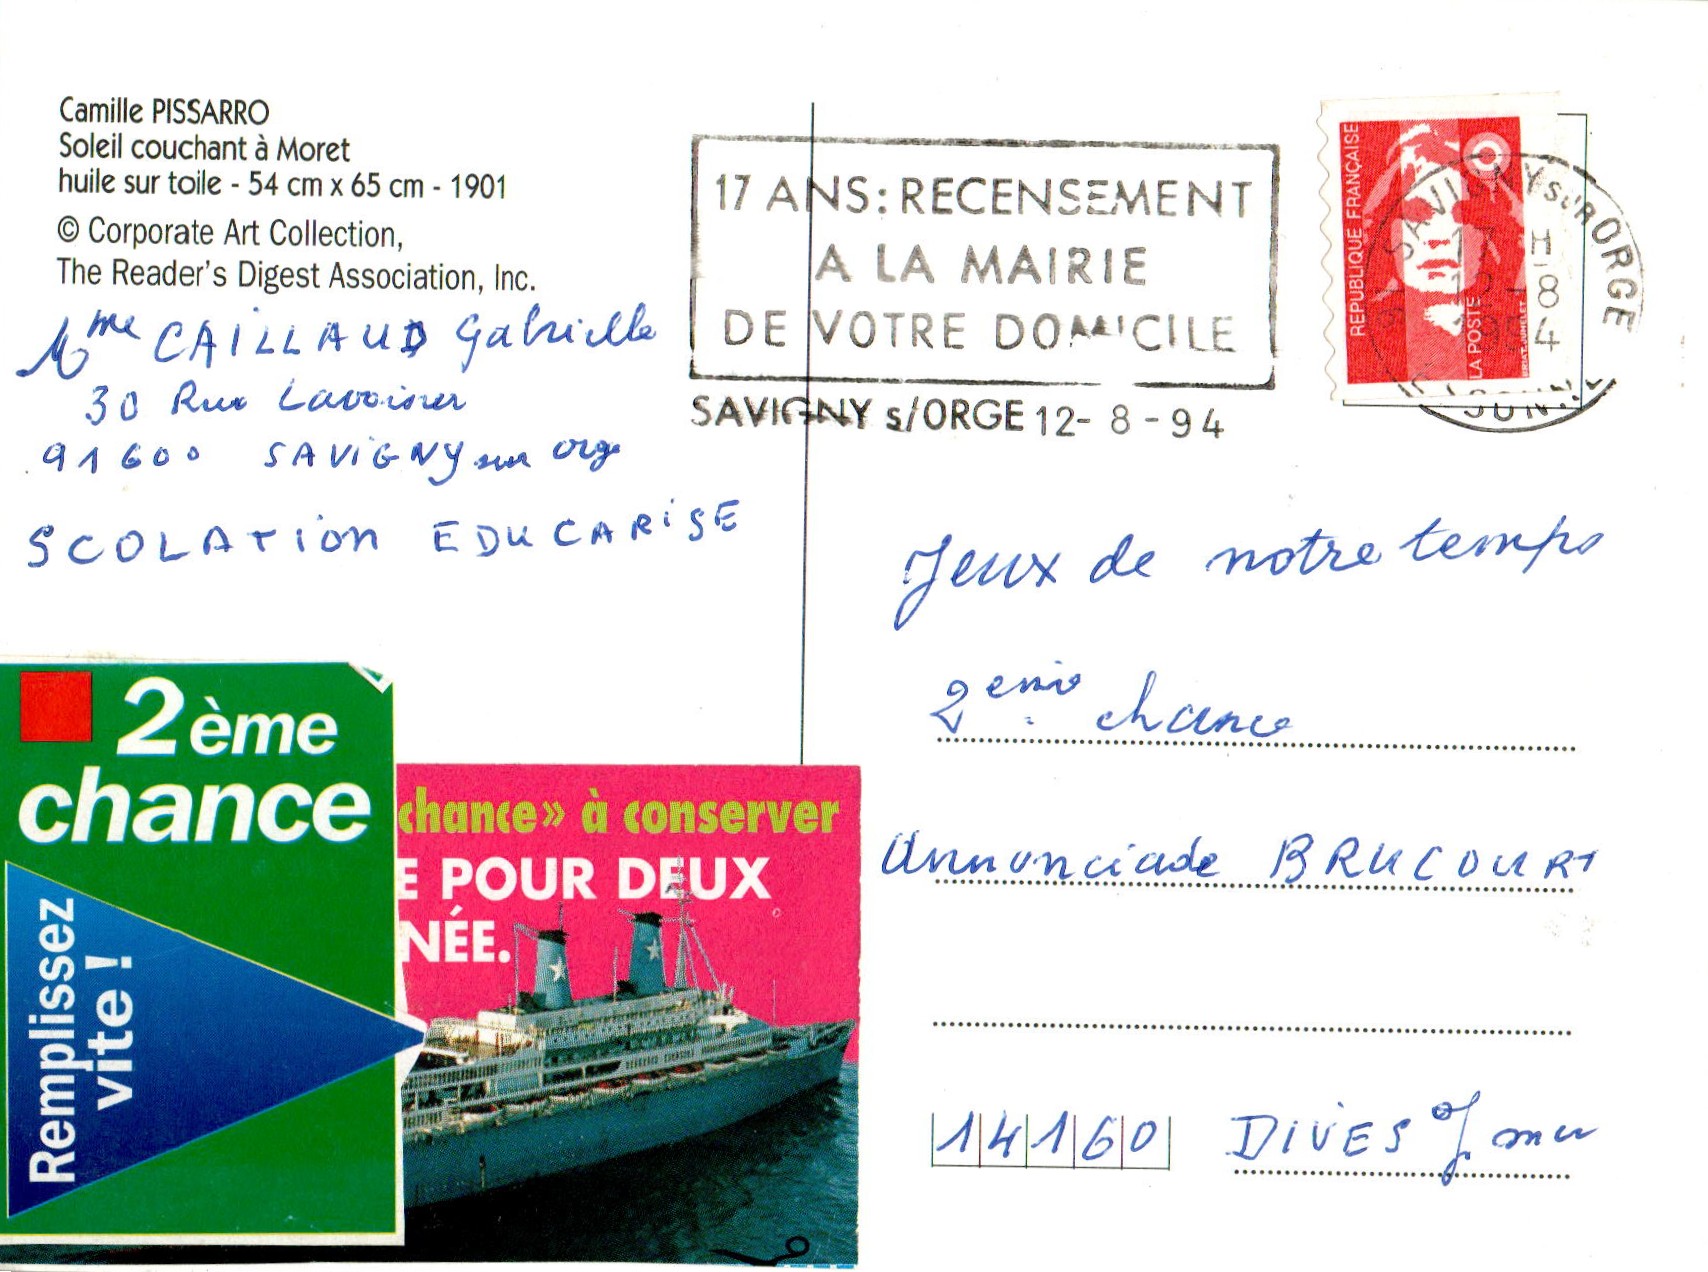 Camille PISSARRO
Soleil couchant à Moret
huile sur toile - 54 cm x 65 cm - 1901
© Corporate Art Collection,
The Reader's Digest Association, Inc.
Mme CAILLAUD Gabrielle
30 Rue Lavoisier
91600 SAViGNY sur orge
SCOLATion EDUCARiSE
17 ANS: RECENSEMENT
A LA MAIRIE
DE VOTRE DOMICILE
SAVIGNY s/ORGE 12-8-94
REPUBLIQUE FRANÇAISE
LA POSTE
SAVIGNY SUR ORGE
Jeux de notre temps
2eme chance
Annonciade BRUCOURT
14160 DIVES s/ mer
2ème
chance
Remplissez
vite !
chance» à conserver
E POUR DEUX
NÉE.